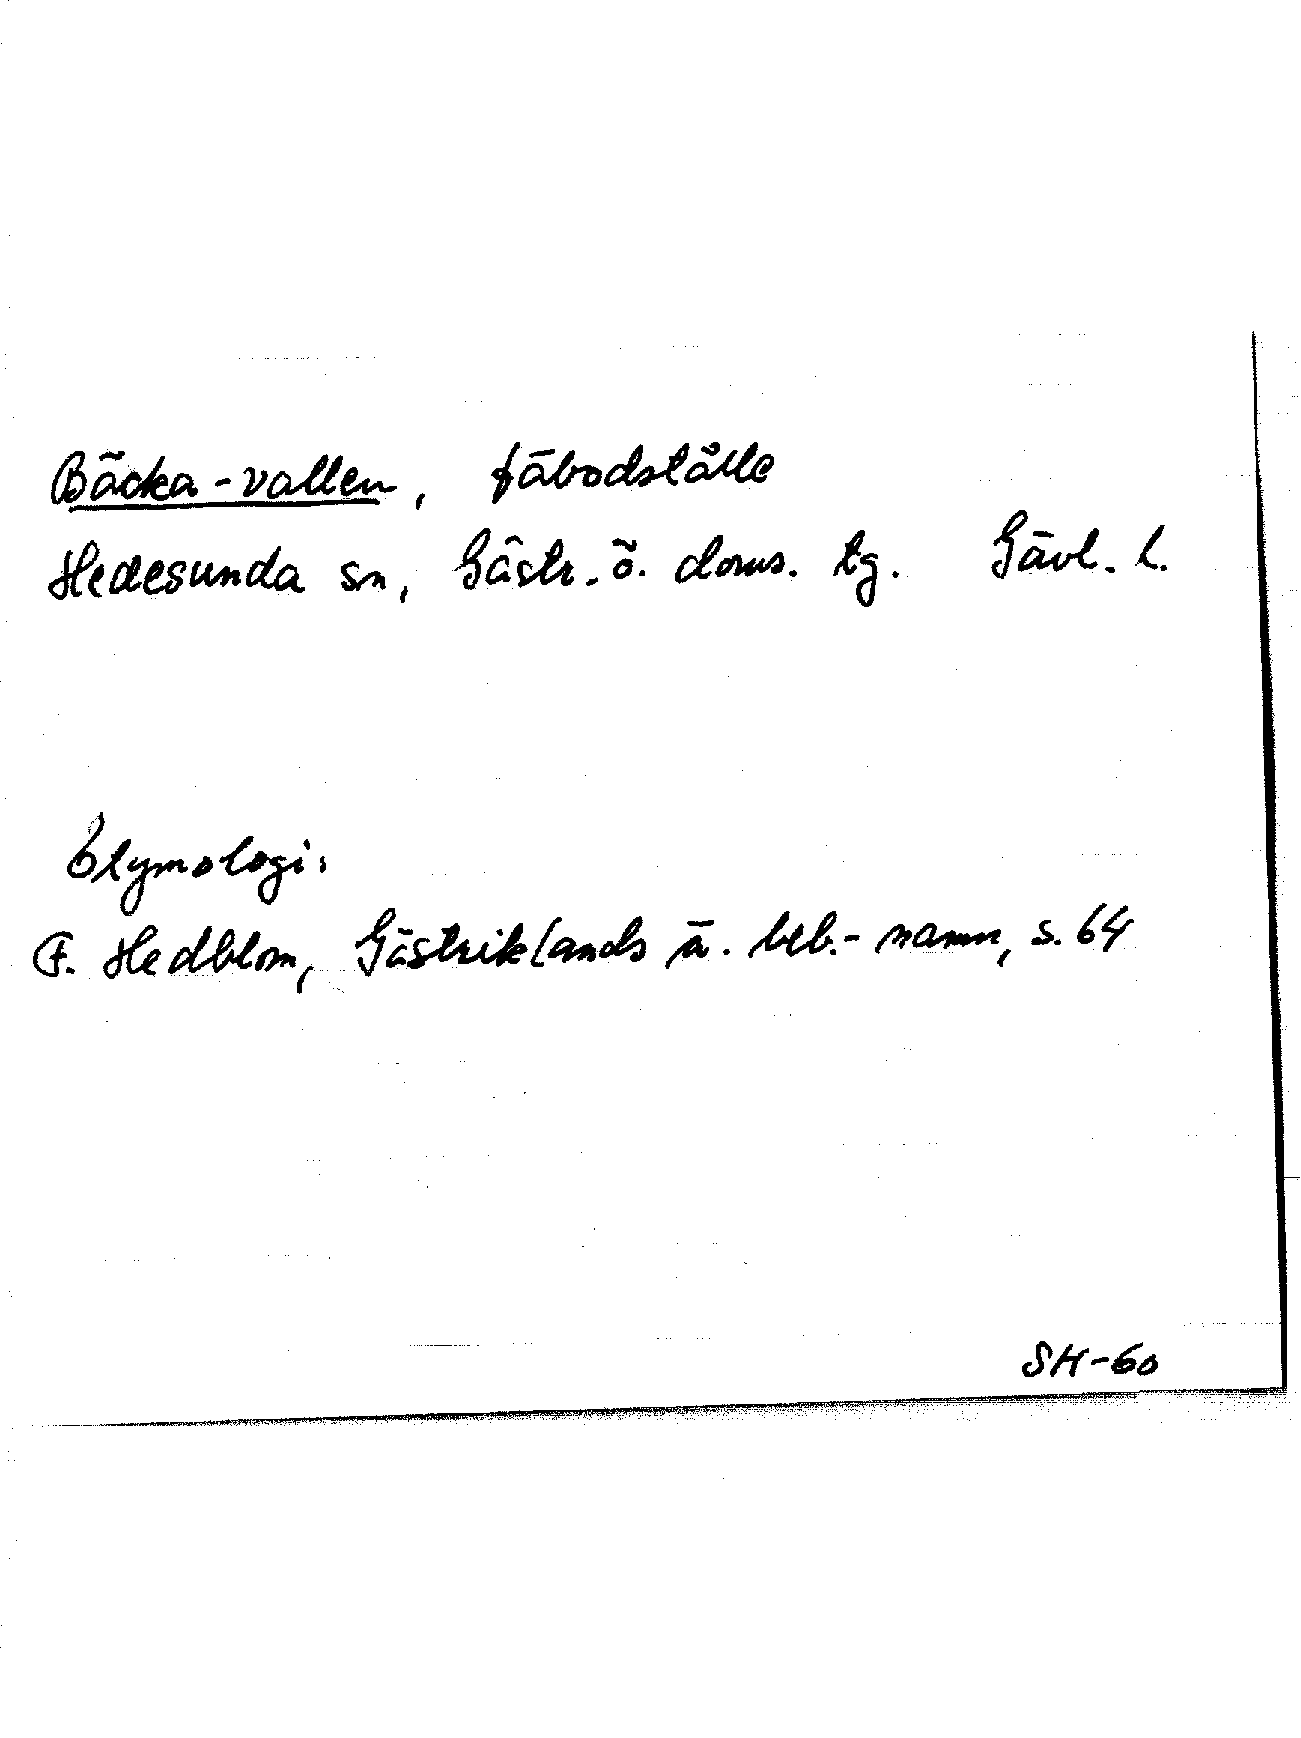 Bäcka-vallen, fäbodställe
Hedesunda sn, Gästr. ö. doms. tg. Gävl. l.
Etymologi:
F. Hedblom, Gästriklands ä. beb.-namn, s. 64
SH-60